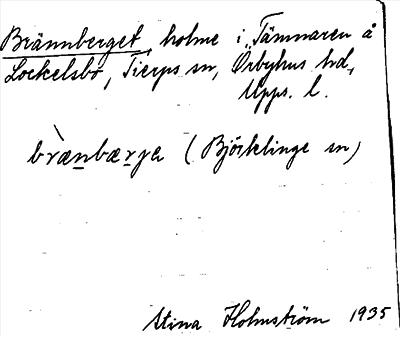 Brännberget, holme i Tämnaren å
Lockelsbo, Tierps sn, Örbyhus hd,
Upps. l.
bræ̀nbærge (Björklinge sn)
Stina Holmström 1935